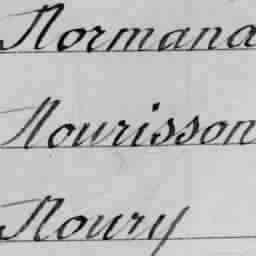 Normana
Nourisson
Noury